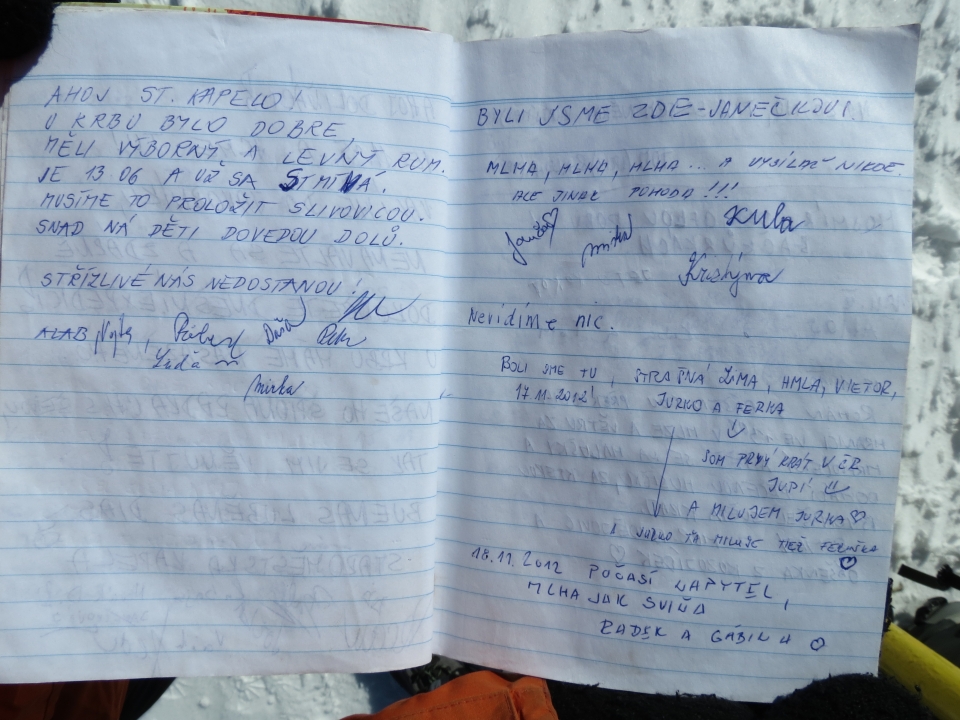 AHOJ ST. KAPELO!
U KRBU BYLO DOBRE,
MĚLI VÝBORNÝ A LEVNÝ RUM.
JE 13 06 A UŽ SA STMÍVÁ.
MUSÍME TO PROLOŽIT SLIVOVICOU.
SNAD NÁ DĚTI DOVEDOU DOLŮ.
STŘÍZLIVÉ NÁS NEDOSTANOU!
ALAB
Mirka
BYLI JSME ZDE - JANEČKOVI.
MLHA, MLHA, MLHA ... A VYSÍLAČ NIKDE.
ALE JINAK POHODA!!!
Kuba
Kristýna
Nevidíme nic.
BOLI SME TU, STRAŠNÁ ZIMA, HMLA, VIETOR,
17.11.2012! JURKO A FERKA
SOM PRVÝ KRÁT V ČR
JUPÍ
A MILUJEM JURKA ♡
A JURKO ŤA MILUJE TIEŽ
18.11.2012 POČASÍ NAPYTEL,
MLHA JAK SVIŇA
RADEK A GÁBINA ♡